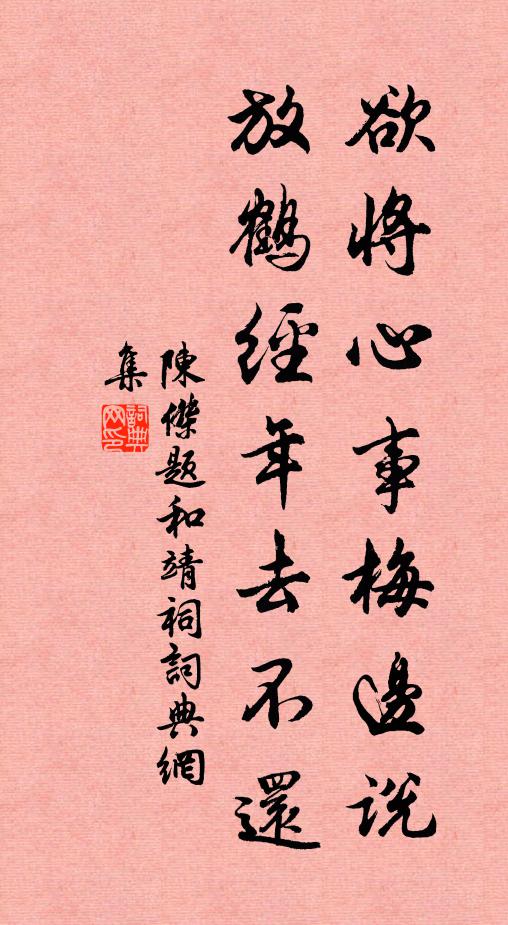 欲將心事梅邊說
放鶴經年去不還
陳傑題和靖祠詞典網
集
詞典
网印